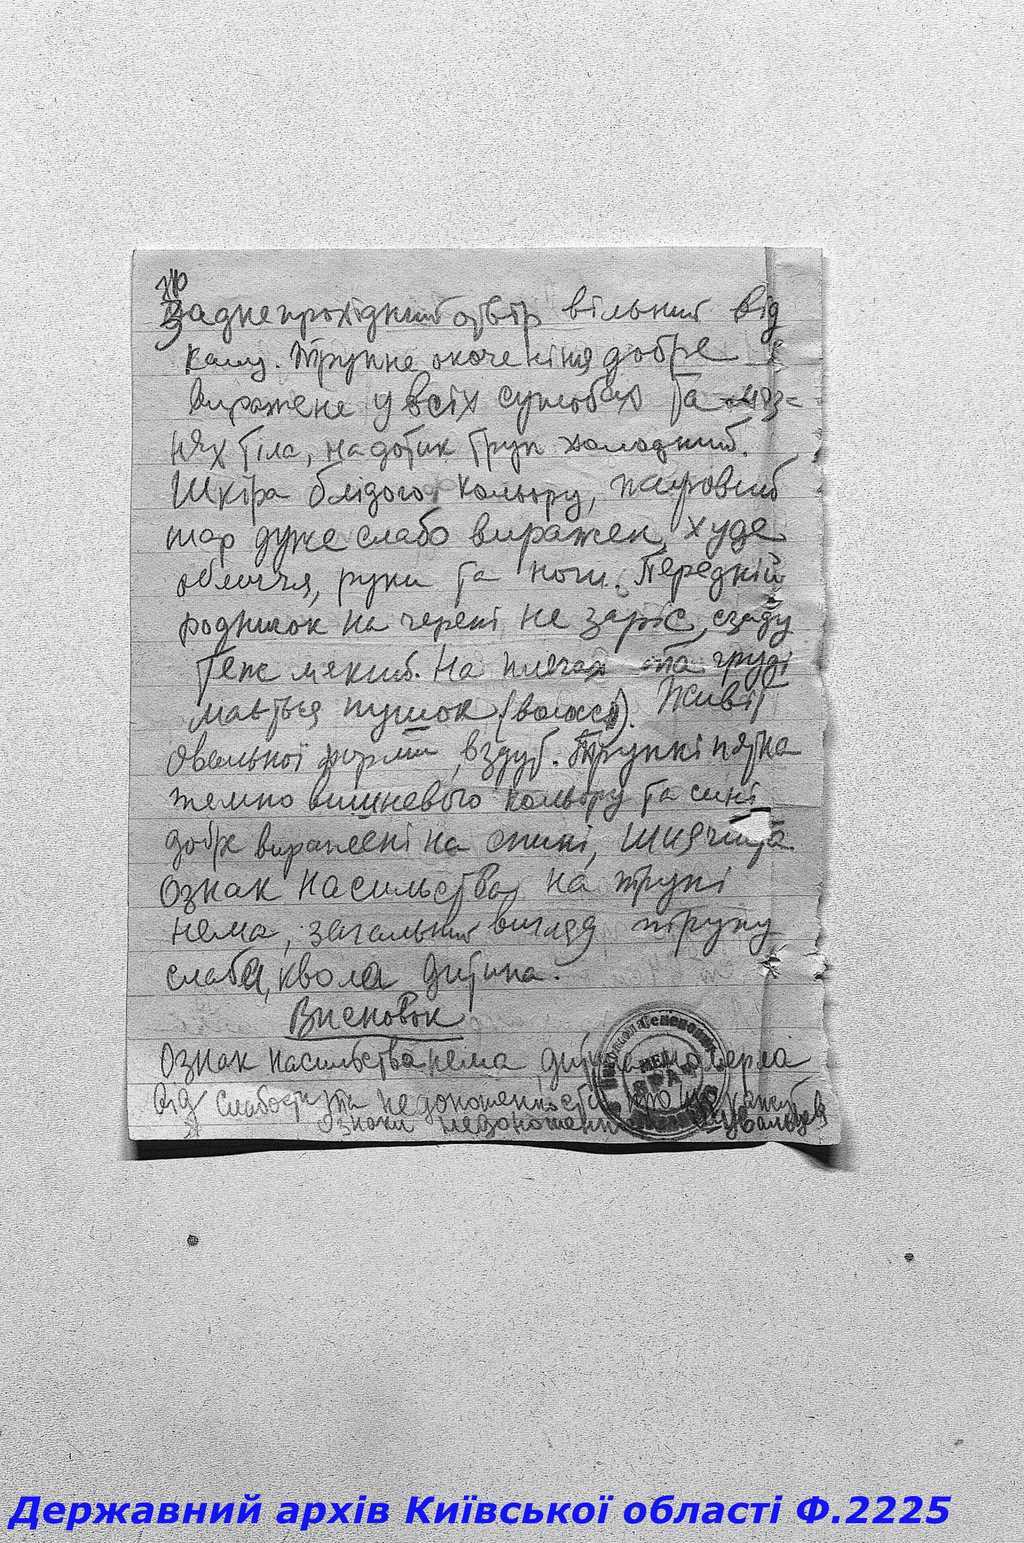 Заднепрохідний отвір вільний від
калу. Трупне окоченіння добре
виражене у всіх суглобах та мяз=
нях тіла, на дотик труп холодний.
Шкіра блідого кольору, жировий
шар дуже слабо виражен, худе
обличчя, руки та ноги. Передній
роднічок на черепі не заріс, сзаду
теж мякий. На плечах та груді
мається пушок (волосся). Живіт
овальної форми, вздут. Трупні пятна
темно вишневого кольору та сині
добре виражені на спині,
Ознак насильства на трупі
нема, загальний вигляд трупу
слаба, квола дитина.
Висновок
Ознак насильства нема, дитина померла
від слабості та недоношенності, про що кажуть
ознаки недоношен
Державний архів Київської області Ф.2225